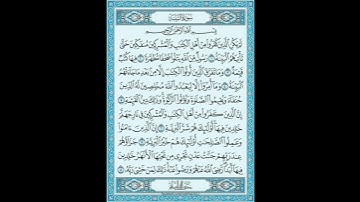 سُورَةُ البَيِّنَةِ
بِسْمِ اللَّهِ الرَّحْمَٰنِ الرَّحِيمِ
لَمْ يَكُنِ الَّذِينَ كَفَرُوا مِنْ أَهْلِ الْكِتَٰبِ وَالْمُشْرِكِينَ مُنفَكِّينَ حَتَّىٰ
تَأْتِيَهُمُ الْبَيِّنَةُ ١ رَسُولٌ مِّنَ اللَّهِ يَتْلُوا صُحُفًا مُّطَهَّرَةً ٢ فِيهَا كُتُبٌ
قَيِّمَةٌ ٣ وَمَا تَفَرَّقَ الَّذِينَ أُوتُوا الْكِتَٰبَ إِلَّا مِن بَعْدِ مَا جَآءَتْهُمُ
الْبَيِّنَةُ ٤ وَمَآ أُمِرُوٓا إِلَّا لِيَعْبُدُوا اللَّهَ مُخْلِصِينَ لَهُ الدِّينَ
حُنَفَآءَ وَيُقِيمُوا الصَّلَوٰةَ وَيُؤْتُوا الزَّكَوٰةَ وَذَٰلِكَ دِينُ الْقَيِّمَةِ ٥
إِنَّ الَّذِينَ كَفَرُوا مِنْ أَهْلِ الْكِتَٰبِ وَالْمُشْرِكِينَ فِي نَارِ جَهَنَّمَ
خَٰلِدِينَ فِيهَآ أُولَٰٓئِكَ هُمْ شَرُّ الْبَرِيَّةِ ٦ إِنَّ الَّذِينَ ءَامَنُوا
وَعَمِلُوا الصَّٰلِحَٰتِ أُولَٰٓئِكَ هُمْ خَيْرُ الْبَرِيَّةِ ٧ جَزَآؤُهُمْ
عِندَ رَبِّهِمْ جَنَّٰتُ عَدْنٍ تَجْرِي مِن تَحْتِهَا الْأَنْهَٰرُ خَٰلِدِينَ
فِيهَآ أَبَدًا رَّضِيَ اللَّهُ عَنْهُمْ وَرَضُوا عَنْهُ ذَٰلِكَ لِمَنْ خَشِيَ رَبَّهُ ٨